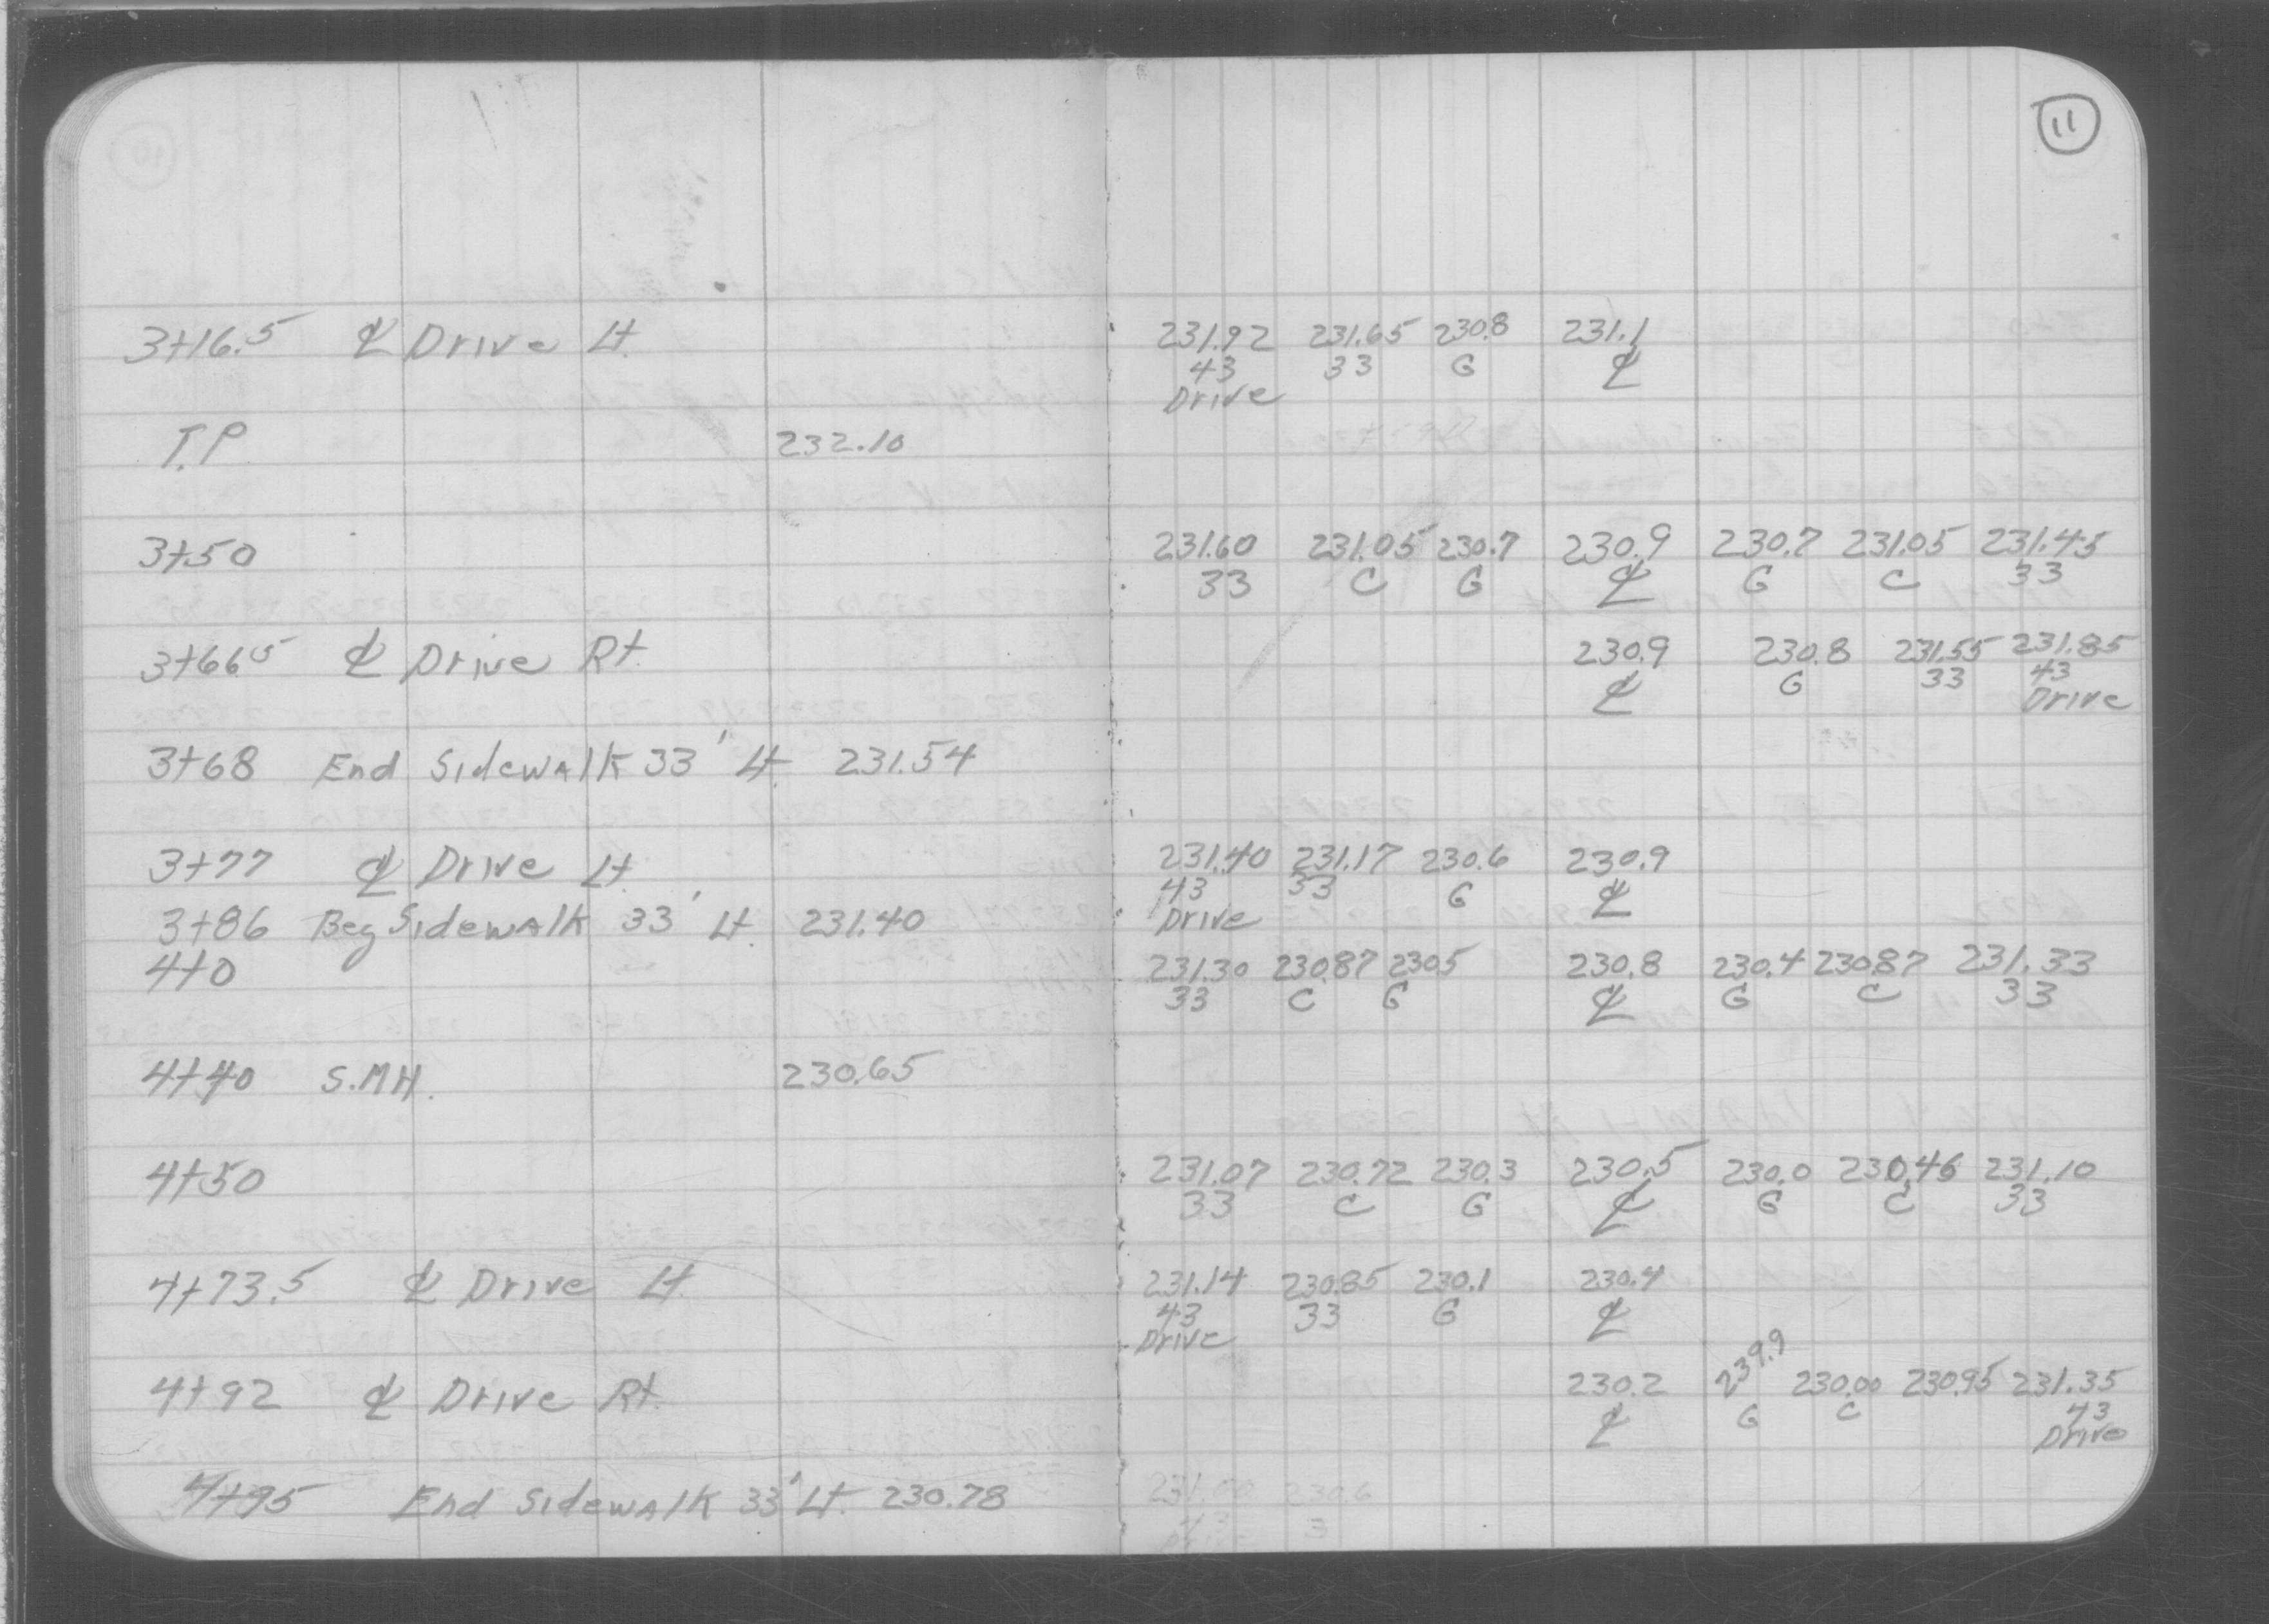 11
3+16.5 ℄ Drive Lt. 231.92 231.65 230.8 231.1
43 33 G ℄
Drive
T.P. 232.10
3+50 231.60 231.05 230.7 230.9 230.7 231.05 231.45
33 C G ℄ G C 33
3+66.5 ℄ Drive Rt. 230.9 230.8 231.55 231.85
℄ G 33 43
Drive
3+68 End Sidewalk 33' Lt. 231.54
3+77 ℄ Drive Lt. 231.40 231.17 230.6 230.9
43 33 G ℄
3+86 Beg Sidewalk 33' Lt. 231.40 Drive
4+0 231.30 230.87 230.5 230.8 230.4 230.87 231.33
33 C G ℄ G C 33
4+40 S.MH. 230.65
4+50 231.07 230.72 230.3 230.5 230.0 230.46 231.10
33 C G ℄ G C 33
4+73.5 ℄ Drive Lt 231.14 230.85 230.1 230.4
43 33 G ℄
Drive
4+92 ℄ Drive Rt. 230.2 239.9 230.00 230.95 231.35
℄ G C 43
Drive
4+95 End Sidewalk 33' Lt. 230.78